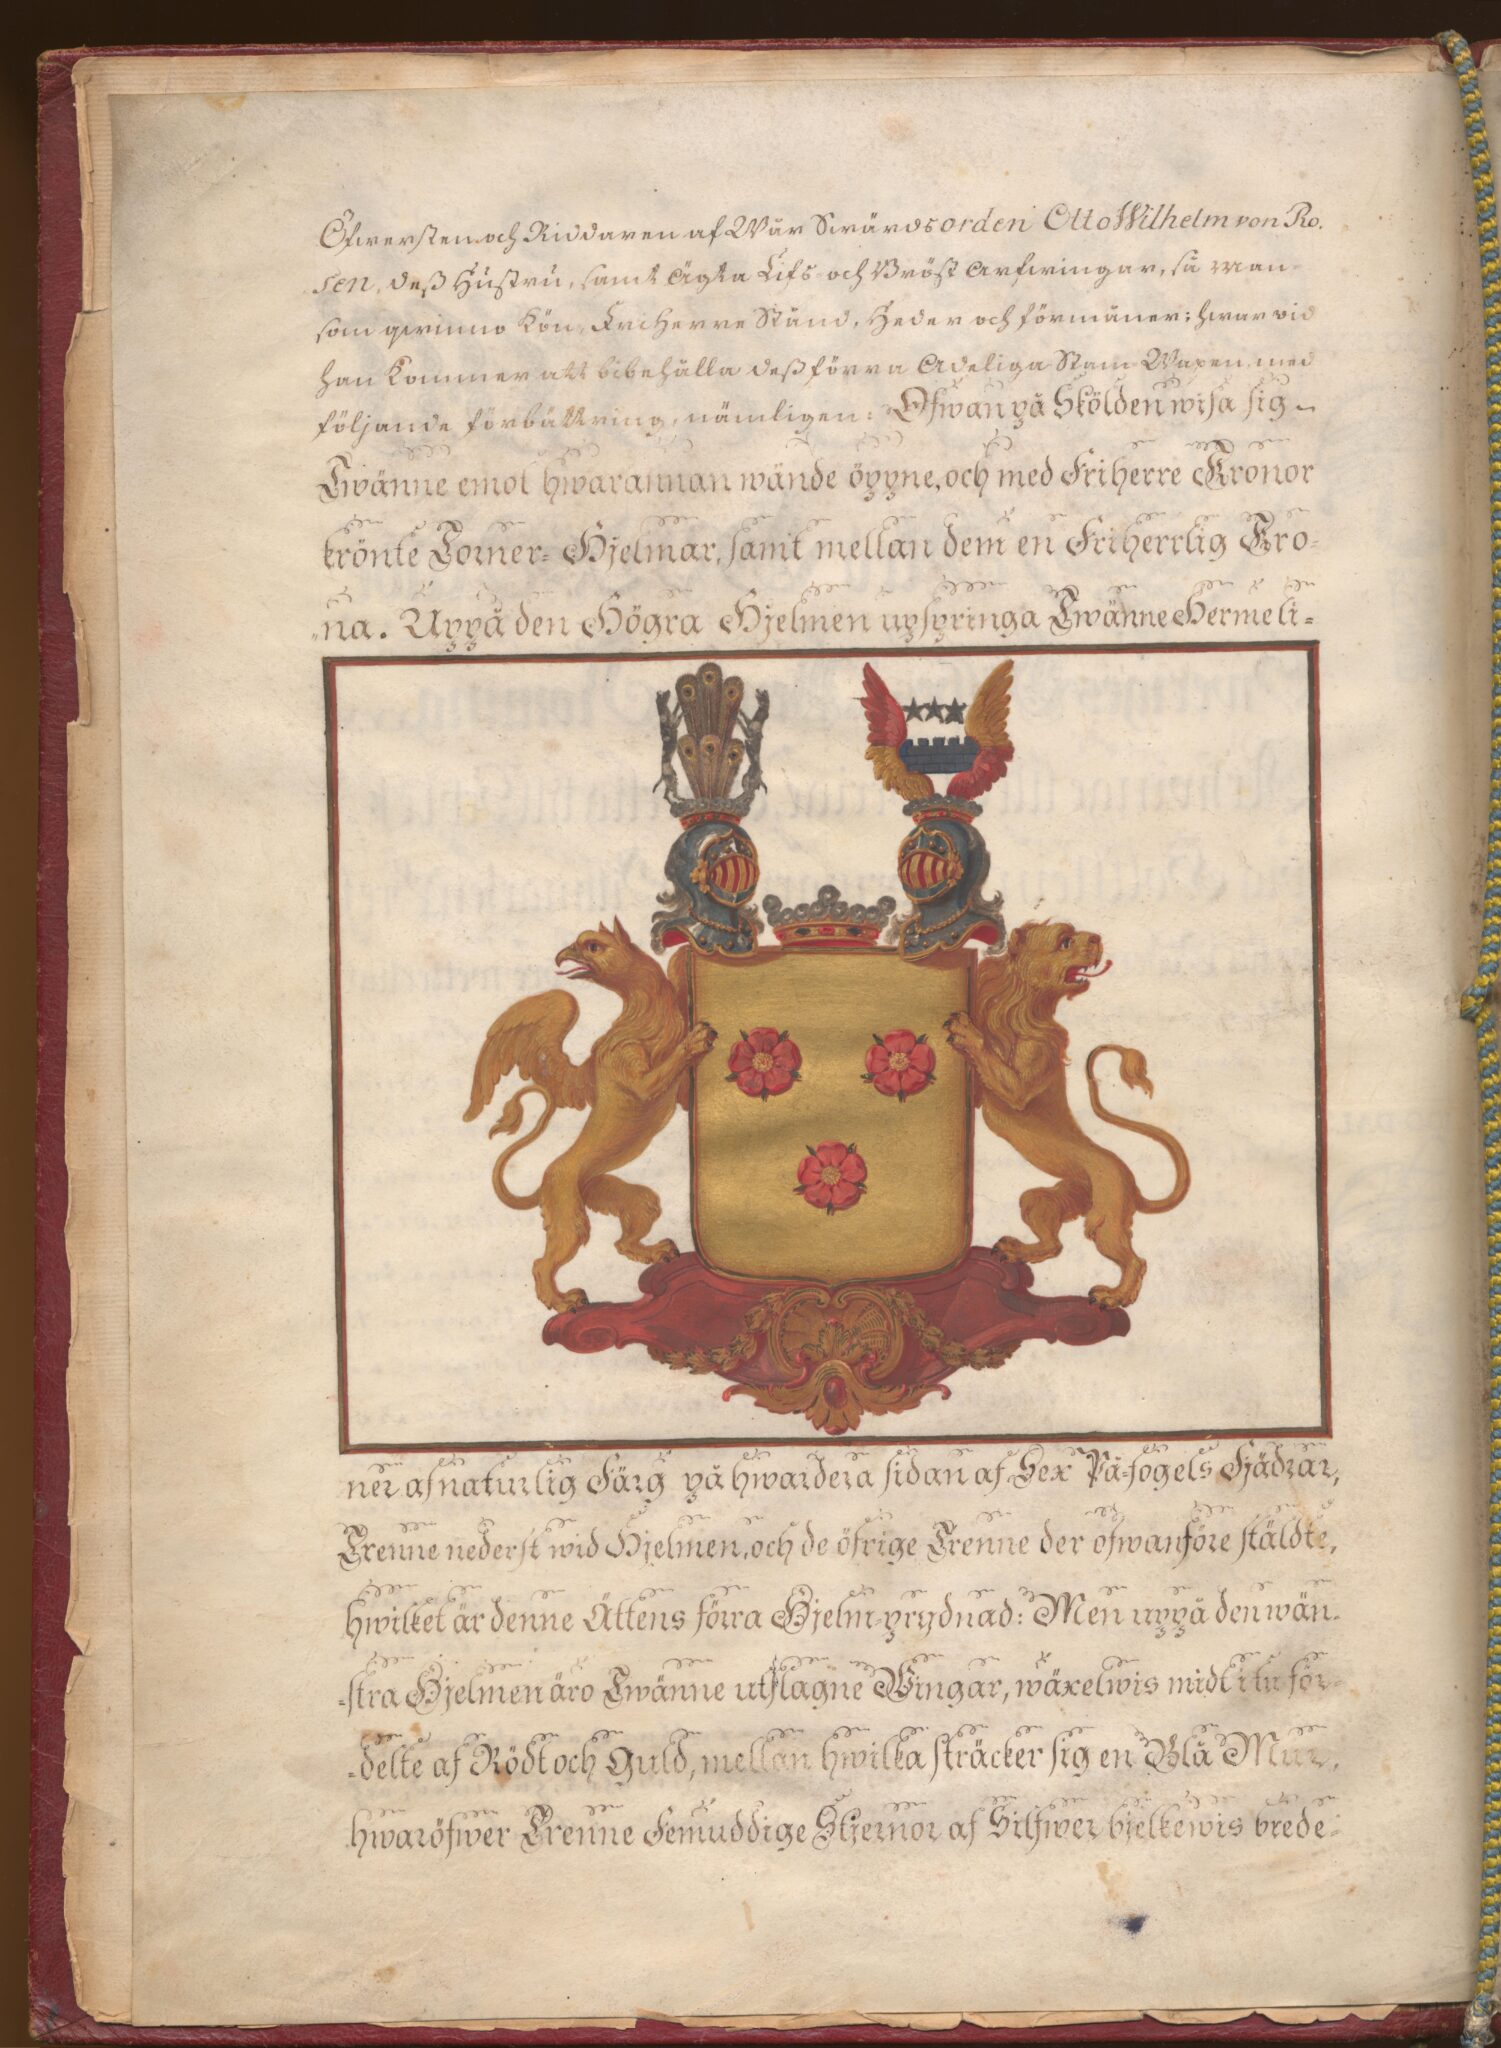 Öfwersten och Riddaren af Wår Swärdsorden Otto Wilhelm von Ro-
sen, deß Hustru, samt ägta Lifs- och Bröst Arfwingar, så man-
som qwinno Kön, FriHerre Stånd, Heder och förmåner: hwarvid
han Kommer att bibehålla deß förra Adeliga Stam-Wapen med
följande förbättring, nämligen: Ofwan på Skölden wisa sig
Twänne emot hwarannan wände öppne, och med Friherre Kronor
krönte Torner-Hjelmar, samt mellan dem en Friherrlig Kro-
-na. Uppå den Högra Hjelmen upspringa Twänne Hermeli-
ner af naturlig Färg på hwardera sidan af Sex På-fogels Fjädrar,
Trenne nederst wid Hjelmen, och de öfrige Trenne der ofwanföre stäldte,
hwilket är denne Ättens förra Hjelm-prydnad: Men uppå den wän-
-stra Hjelmen äro Twänne utslagne Wingar, wäxelwis midt itu för-
-delte af Rödt och Guld, mellan hwilka sträcker sig en Blå Mur,
hwaröfwer Trenne Femuddige Stjernor af Silfwer bjelkewis brede-